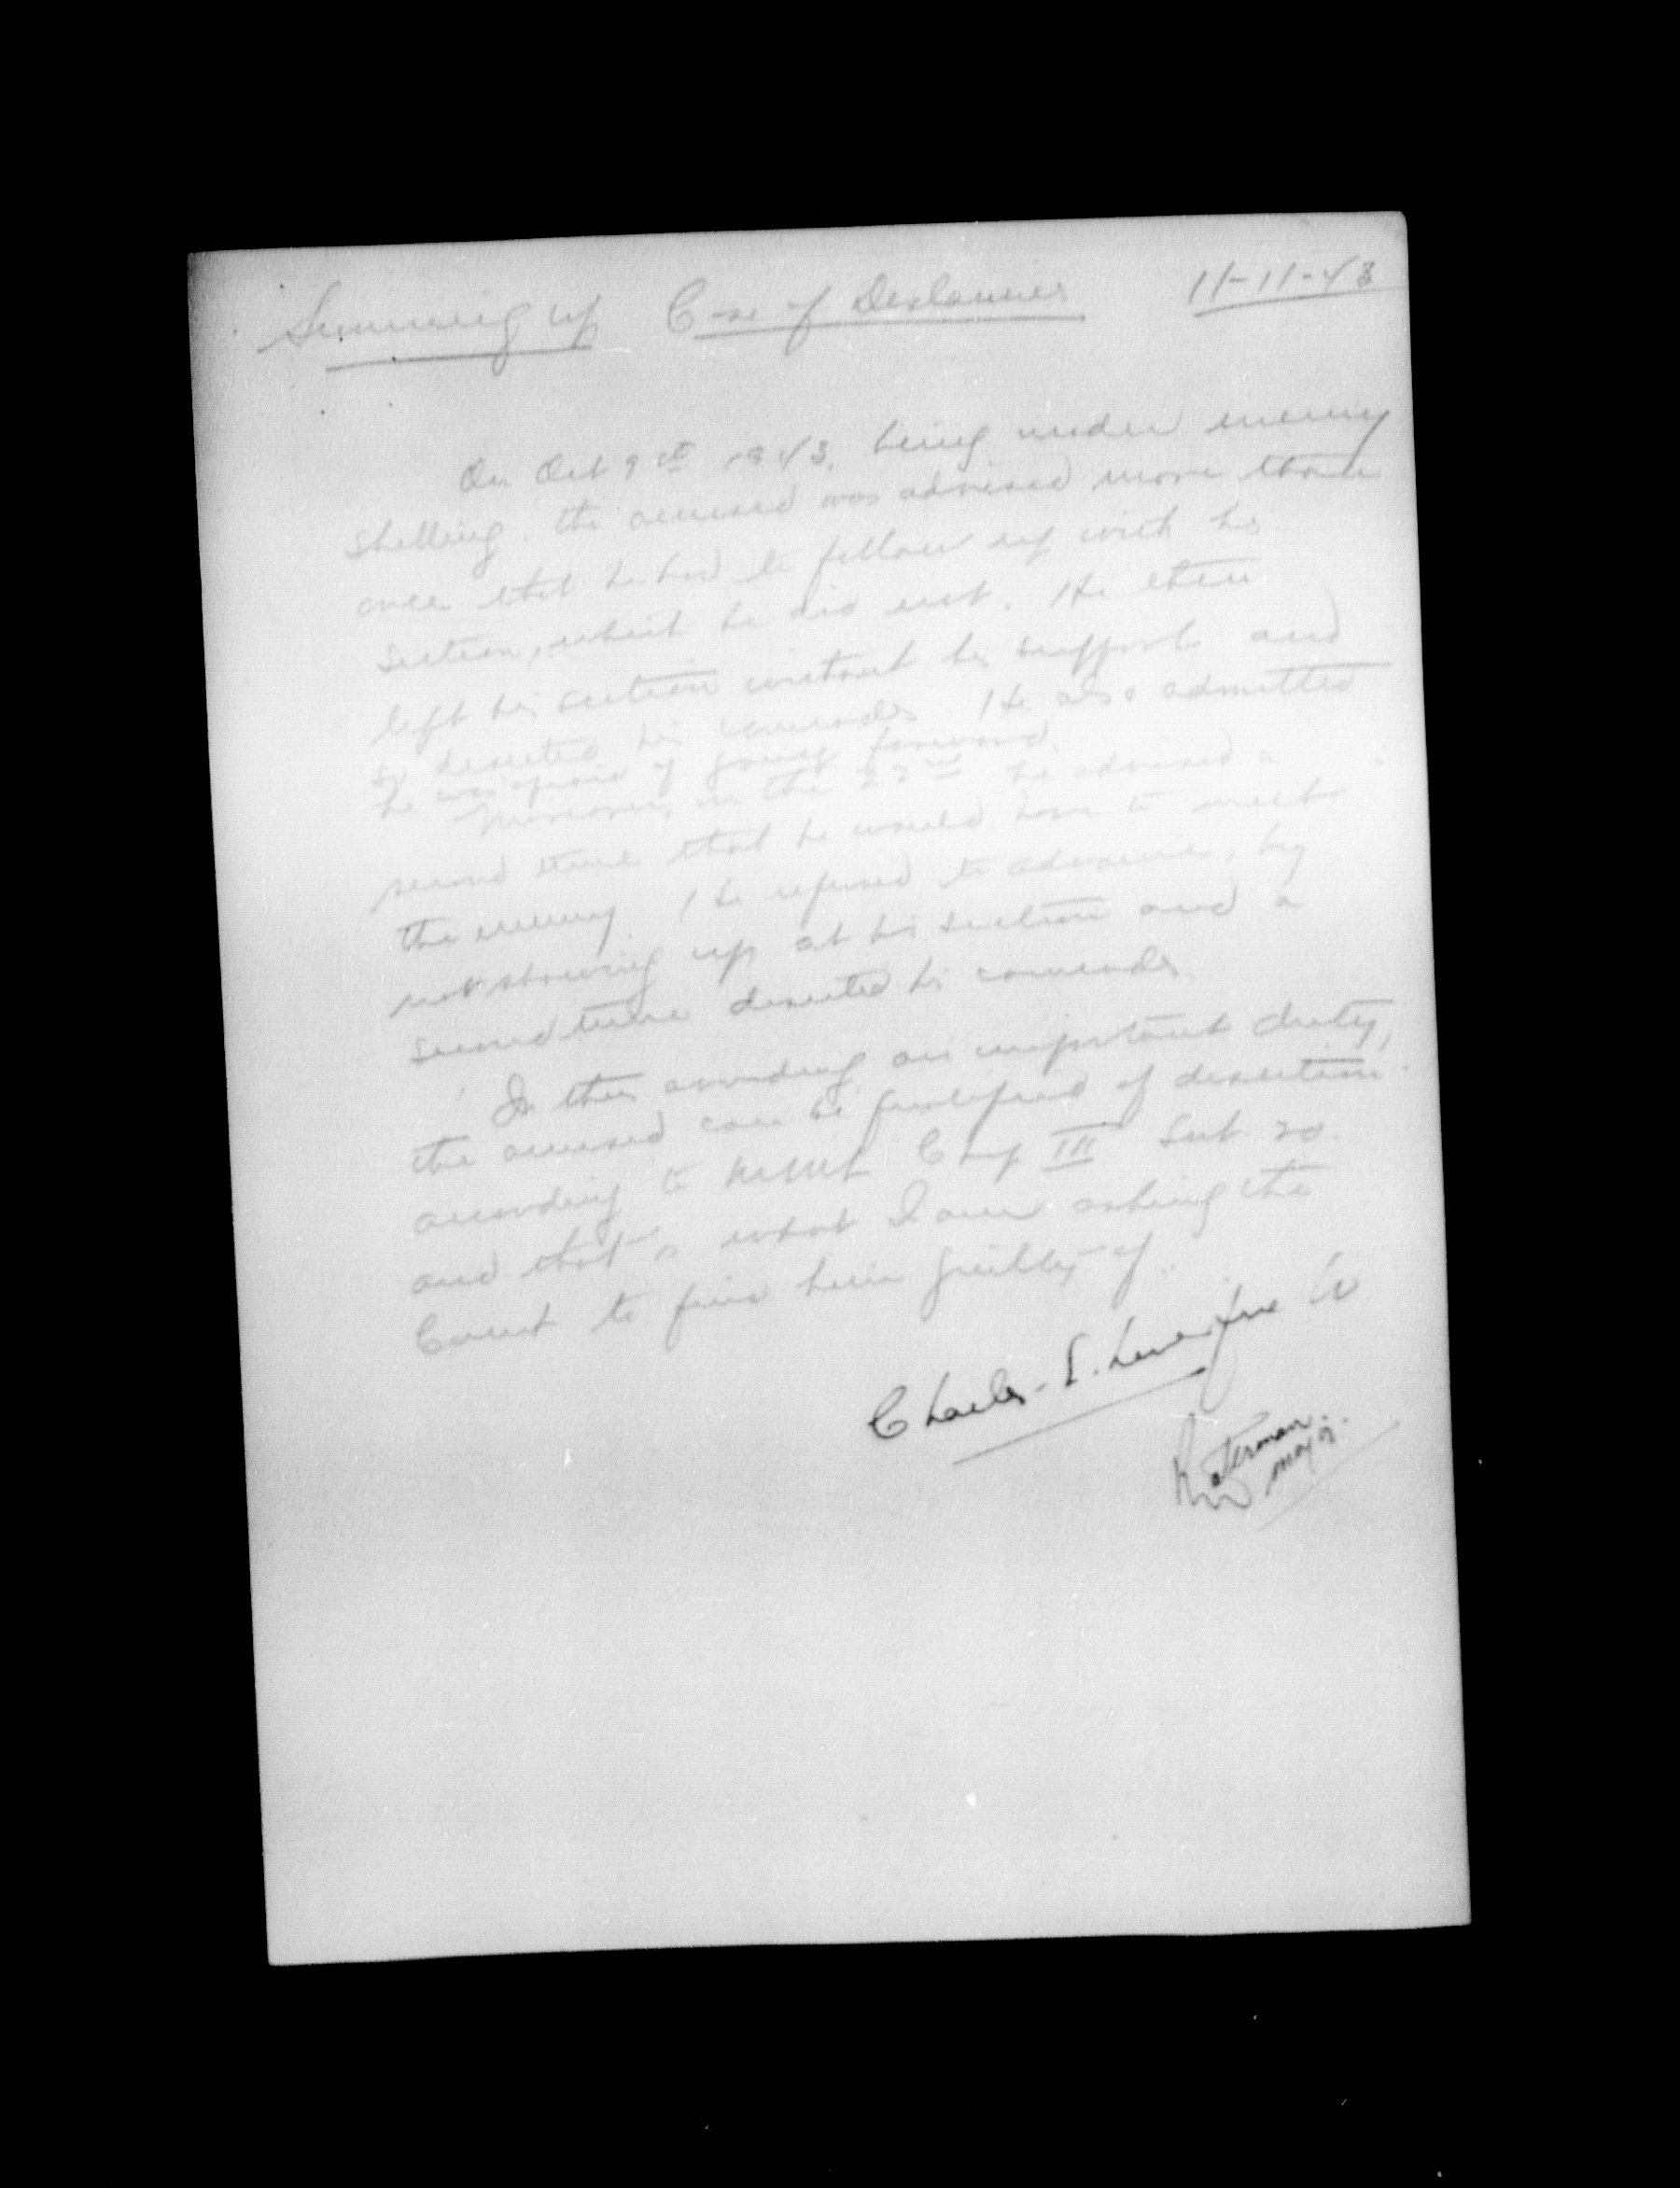 Summing up Case of Deslauriers 11-11-43
On Oct 9th 1943, being under enemy
shelling. the accused was advised more than
once that he had to follow up with his
section, which he did not. He then
left his section without his support and
so deserted his comrades. He also admitted
he was afraid of going forward.
Moreover, on the 22nd he advised a
second time that he would have to meet
the enemy. He refused to advance, by
not showing up at his section and a
second time deserted his comrades
In thus avoiding an important duty,
the accused can be of desertion.
according to MML Chap III Sect 20.
and that is what I am asking the
Court to find him guilty of.
Charles-E.
Major